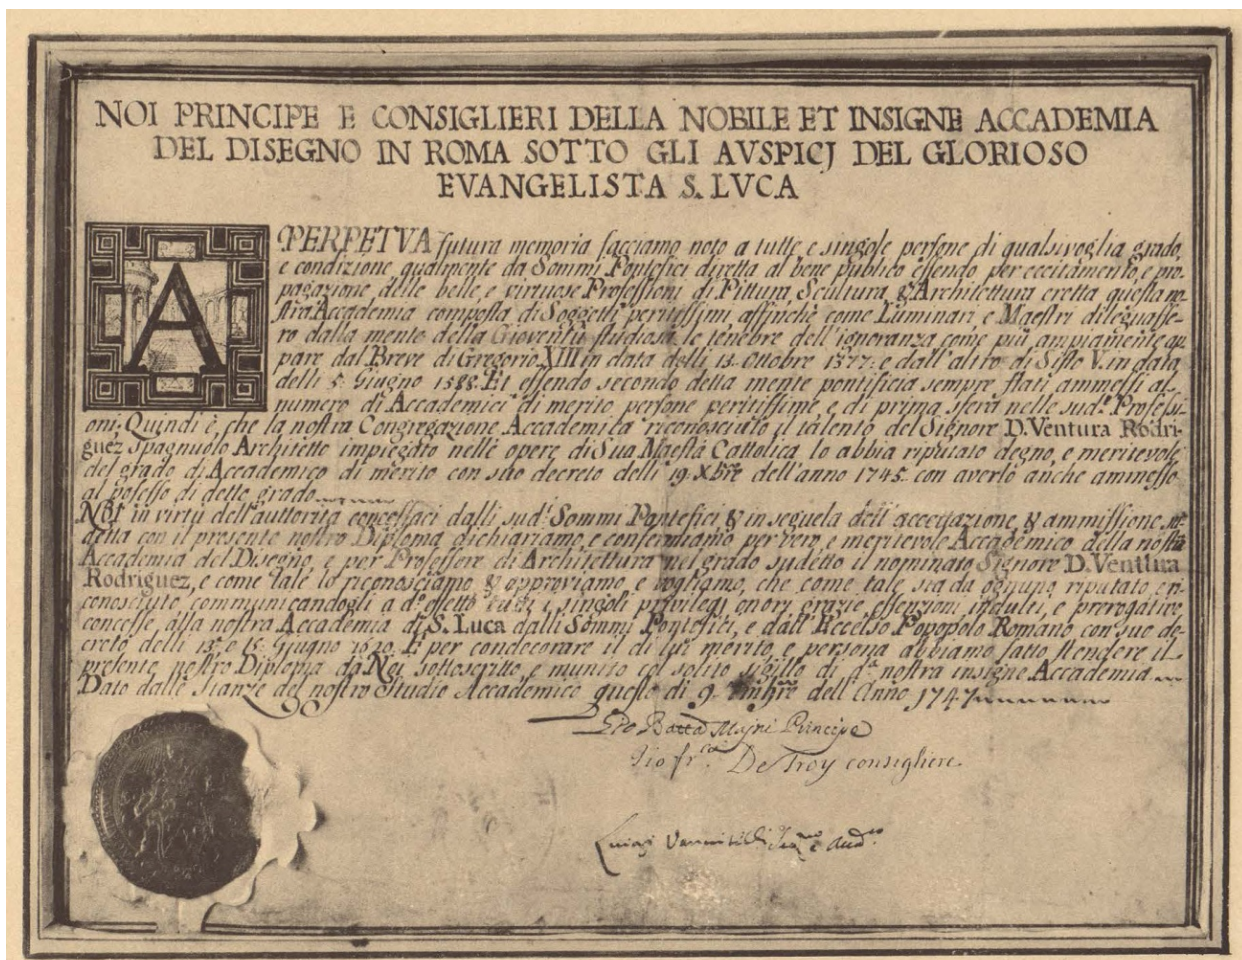 NOI PRINCIPE E CONSIGLIERI DELLA NOBILE ET INSIGNE ACCADEMIA
DEL DISEGNO IN ROMA SOTTO GLI AVSPICJ DEL GLORIOSO
EVANGELISTA S. LVCA
A PERPETVA futura memoria facciamo noto a tutte, e singole persone di qualsivoglia grado,
e condizione, qualmente da Sommi Pontefici diretta al bene publico essendo per eccitamento, e pro-
pagazione delle belle, e virtuose Professioni di Pittura, Scultura, & Architettura eretta questa no-
stra Accademia composta di Soggetti peritissimi affinchè come Luminari, e Maestri dileguasse-
ro dalla mente della Gioventù studiosa le tenebre dell'ignoranza come più ampiamente ap-
pare dal Breve di Gregorio XIII in data delli 13. Ottobre 1577. e dall'altro di Sisto V. in data
delli 5. Giugno 1588. Et essendo secondo detta mente pontificia sempre stati ammessi al
numero di Accademici di merito persone peritissime, e di prima sfera nelle sud.e Professi-
oni; Quindi è, che la nostra Congregazione Accademica riconosciuto il talento del Signore D. Ventura Rodri-
guez Spagnuolo Architetto impiegato nelle opere di Sua Maestà Cattolica, lo abbia riputato degno, e meritevole
del grado di Accademico di merito con suo decreto delli 19. Xbre dell'anno 1745. con averlo anche ammesso
al posesso di detto grado
Noi in virtù dell'auttorità concessaci dalli sud.i Sommi Pontefici & in seguela dell'accettazione, & ammissione su-
detta con il presente nostro Diploma dichiariamo, e conferiamo per vero, e meritevole Accademico della nostra
Accademia del Disegno, e per Professore di Architettura nel grado sudetto il nominato Signore D. Ventura
Rodriguez, e come tale lo riconosciamo & approviamo, e vogliamo, che come tale sia da ognuno riputato, e ri-
conosciuto, communicandogli a d.o effetto tutti, i singoli privilegj onori grazie, essenzioni indulti, e prerogative
concesse alla nostra Accademia di S. Luca dalli Sommi Pontefici, e dall'Eccelso Popopolo Romano con suo de-
creto delli 15. e 16. Giugno 1620. E per condecorare il di lui merito, e persona abbiamo fatto stendere il
presente nostro Diploma da Noi sottoscritto, e munito col solito sigillo di d.a nostra insigne Accademia
Dato dalle Stanze del nostro Studio Accademico questo di 9. dell'Anno 1747
Gio Batta Majni Principe
Gio fr.co De Troy consigliere
Luigi Vanvitelli